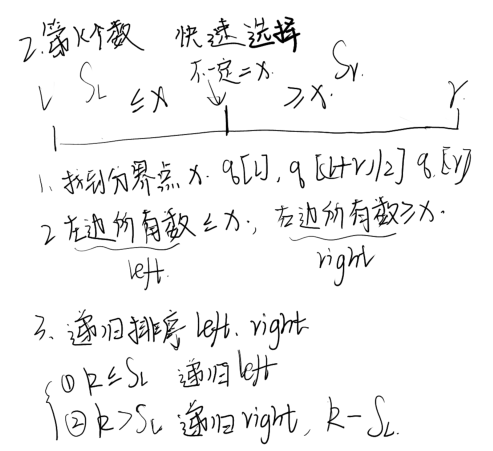 2.第k个数 快速选择
不一定=x.
L SL ≤x ≥x. Sr. r
1、找到分界点x. q[L], q[(L+r)/2] q[r]
2 左边所有数≤x; 右边所有数≥x.
left. right
3、递归排序 left. right
① k≤SL 递归left
② k>SL 递归right, k-SL.